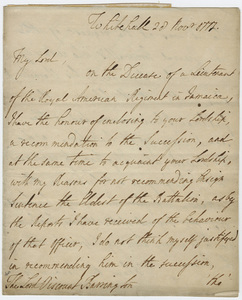 Whitehall 28 Novr 1772
My Lord
on the Decease of a Lieutenant
of the Royal American Regiment in Jamaica,
I have the honour of enclosing to your Lordship,
a recommendation to the Succession, and
at the same time to acquaint your Lordship,
with my Reasons for not recommending Ensign
the Eldest of the Battalion, as by
the Reports I have received of the behaviour
of that Officer, I do not think myself justified
in recommending him in the succession,
The Lord Viscount Barrington tho'